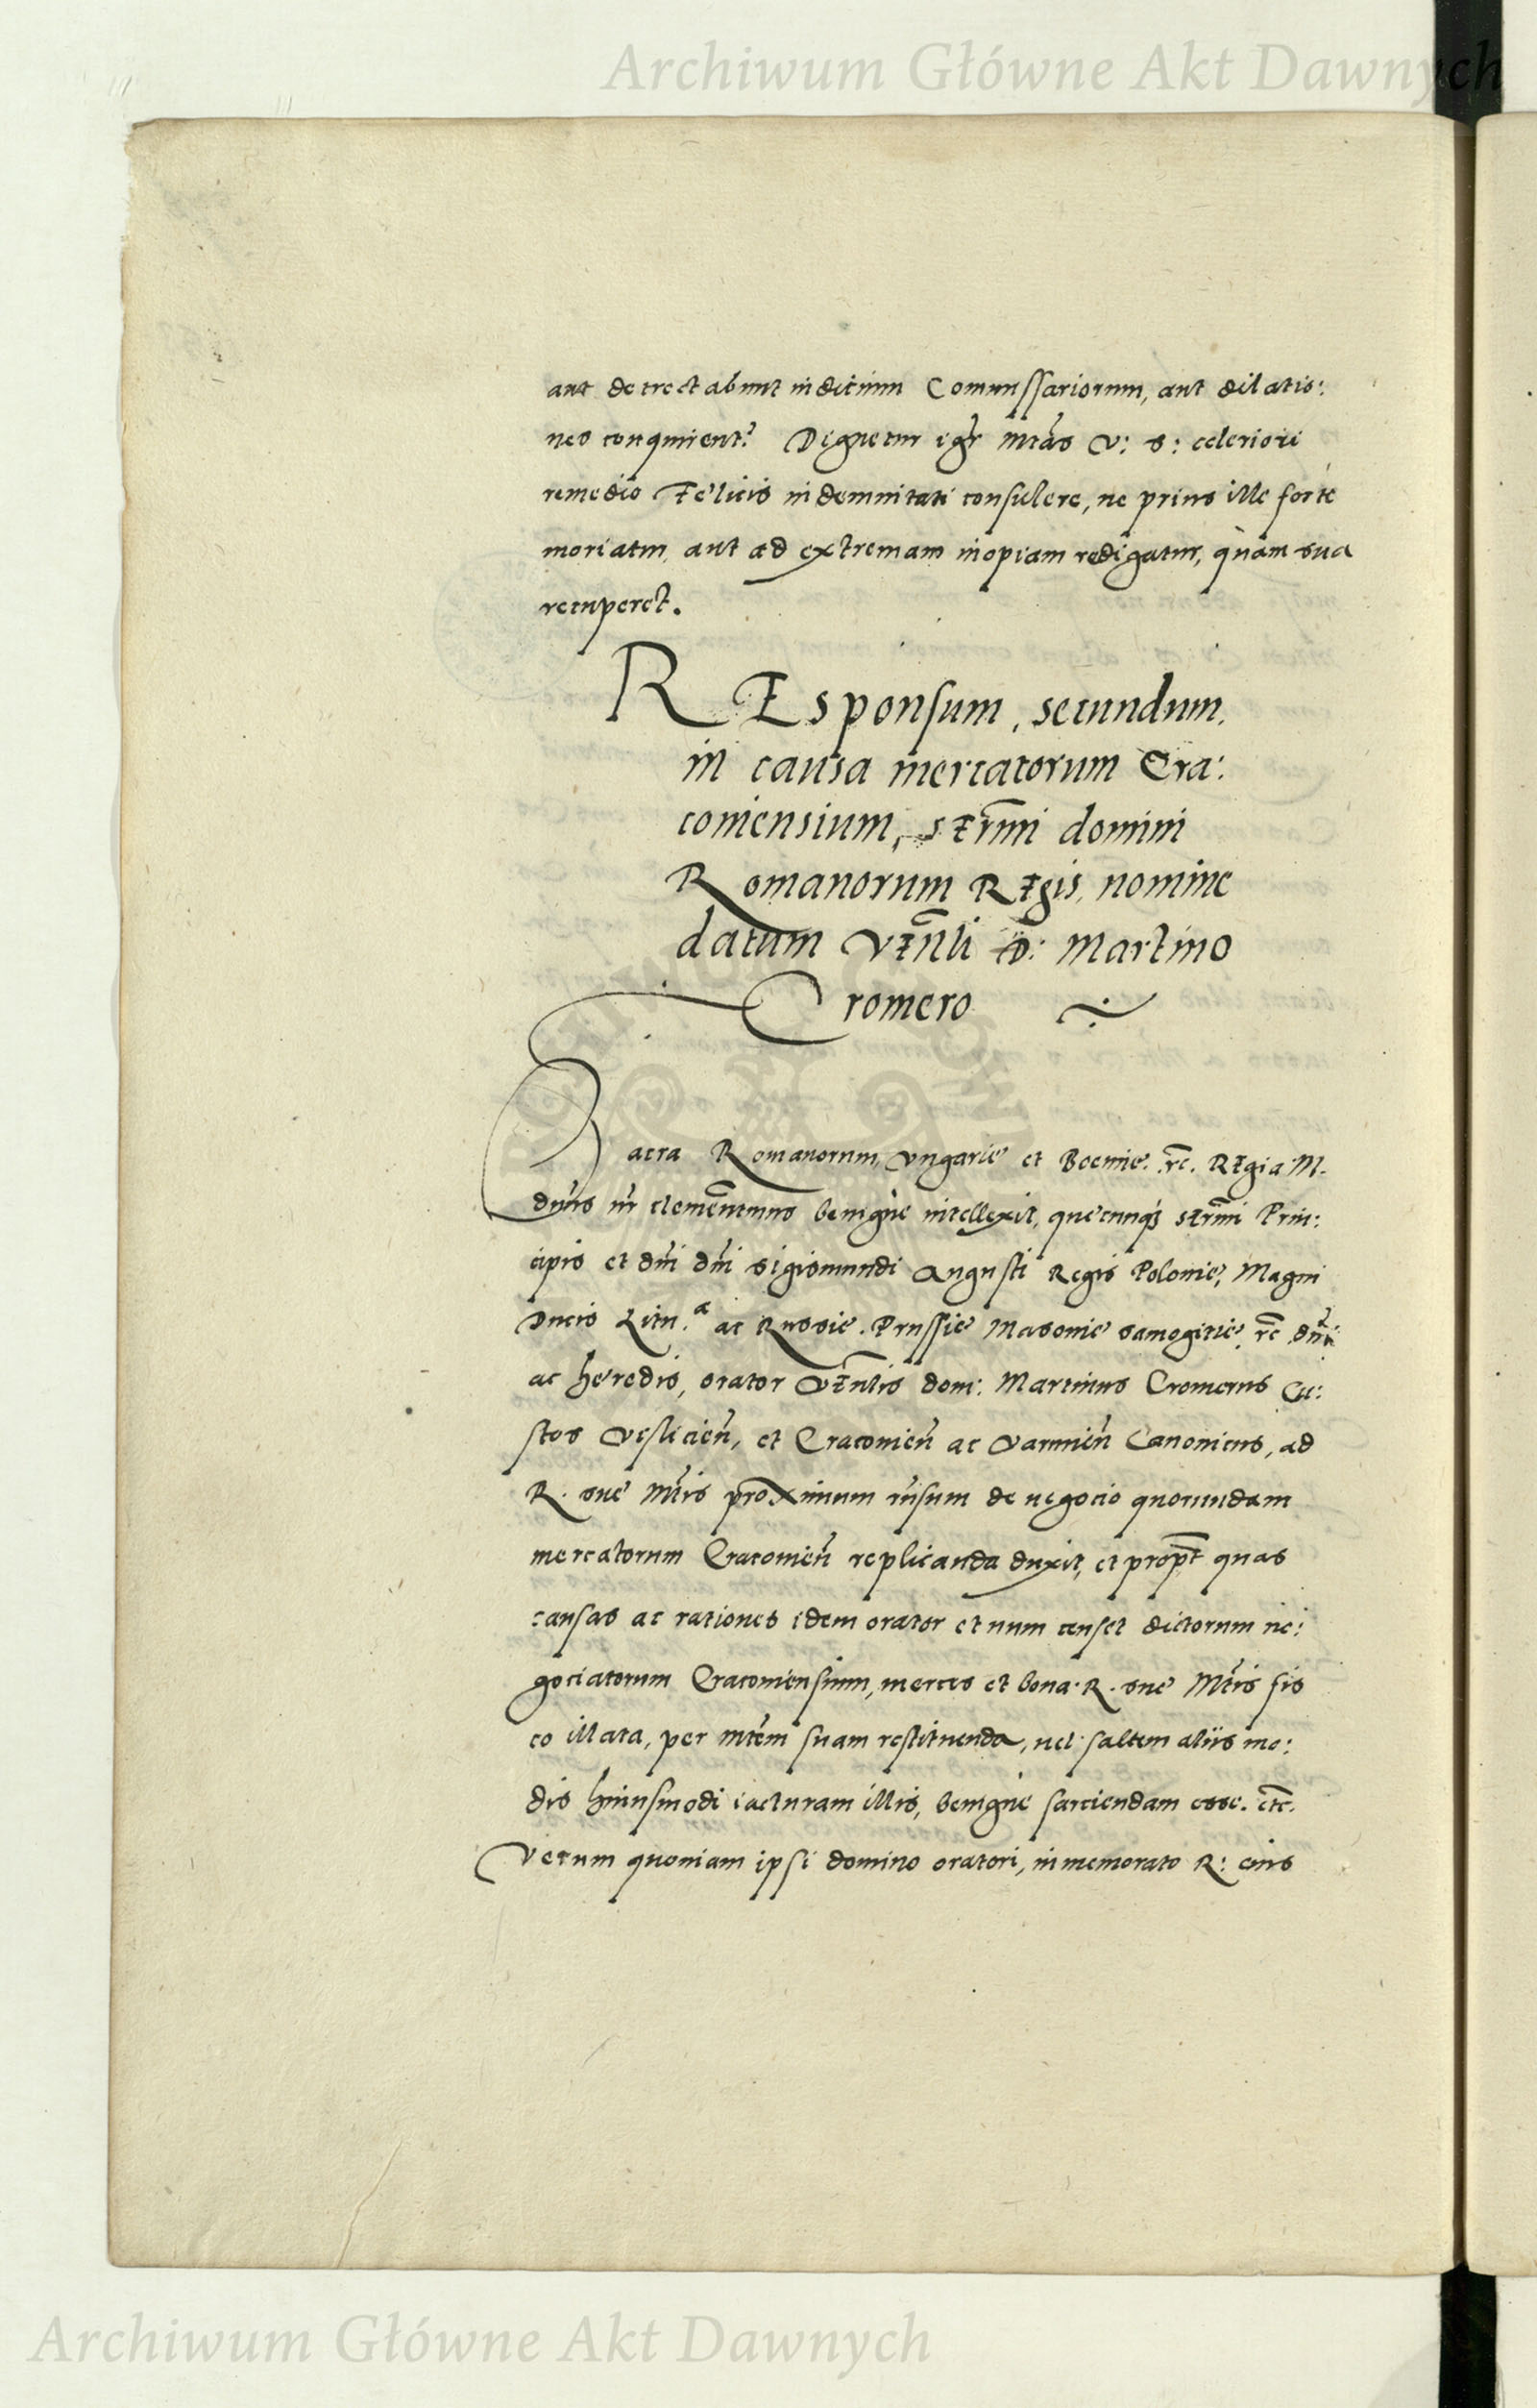 Archiwum Główne Akt Dawnych
aut detrectabunt iudicium Comunssariorum, aut dilatio:
nes conquirent? Dignetur igr̄ Mtās V: S: celeriori
remedio Felicis indemnitati consulere, ne prius ille forte
moriatur, aut ad extremam inopiam redigatur, quàm sua
recuperet.
REsponsum, secundum,
in causa mercatorum Cra:
coviensium, sermī domini
Romanorum Regis, nomine
datum Venlī D: Martino
Cromero
Sacra Romanorum, Ungarie et Boemie. rc. Regia M.
dn̄us nr̄ clemen̄mus benignè intellexit, quecunq3 sermī Prin:
cipis et dnī dnī Sigismundi Augusti Regis Polonie, Magni
Ducis Litu.a ac Russie. Prussie Masovie Samogitie, rc dnī
ac heredis, orator Venlīs dom: Martinus Cromerus Cu:
stos Visliciēn, et Cracoviēn ac Varmiēn Canonicus, ad
R. sue Mtīs proximum rn̄sum de negocio quorundam
mercatorum Cracoviēn replicanda duxit, et propt quas
causas ac rationes idem orator etnum censet dictorum ne:
gociatorum Cracoviensium, merces et bona R. sue Mtīs fis
co illata, per mtēm suam restituenda, vel saltem aliis mo:
dis huiusmodi iacturam illis, benignè sarciendam esse. etc.
Verum quoniam ipsi domino oratori, in memorato R: eius
Archiwum Główne Akt Dawnych